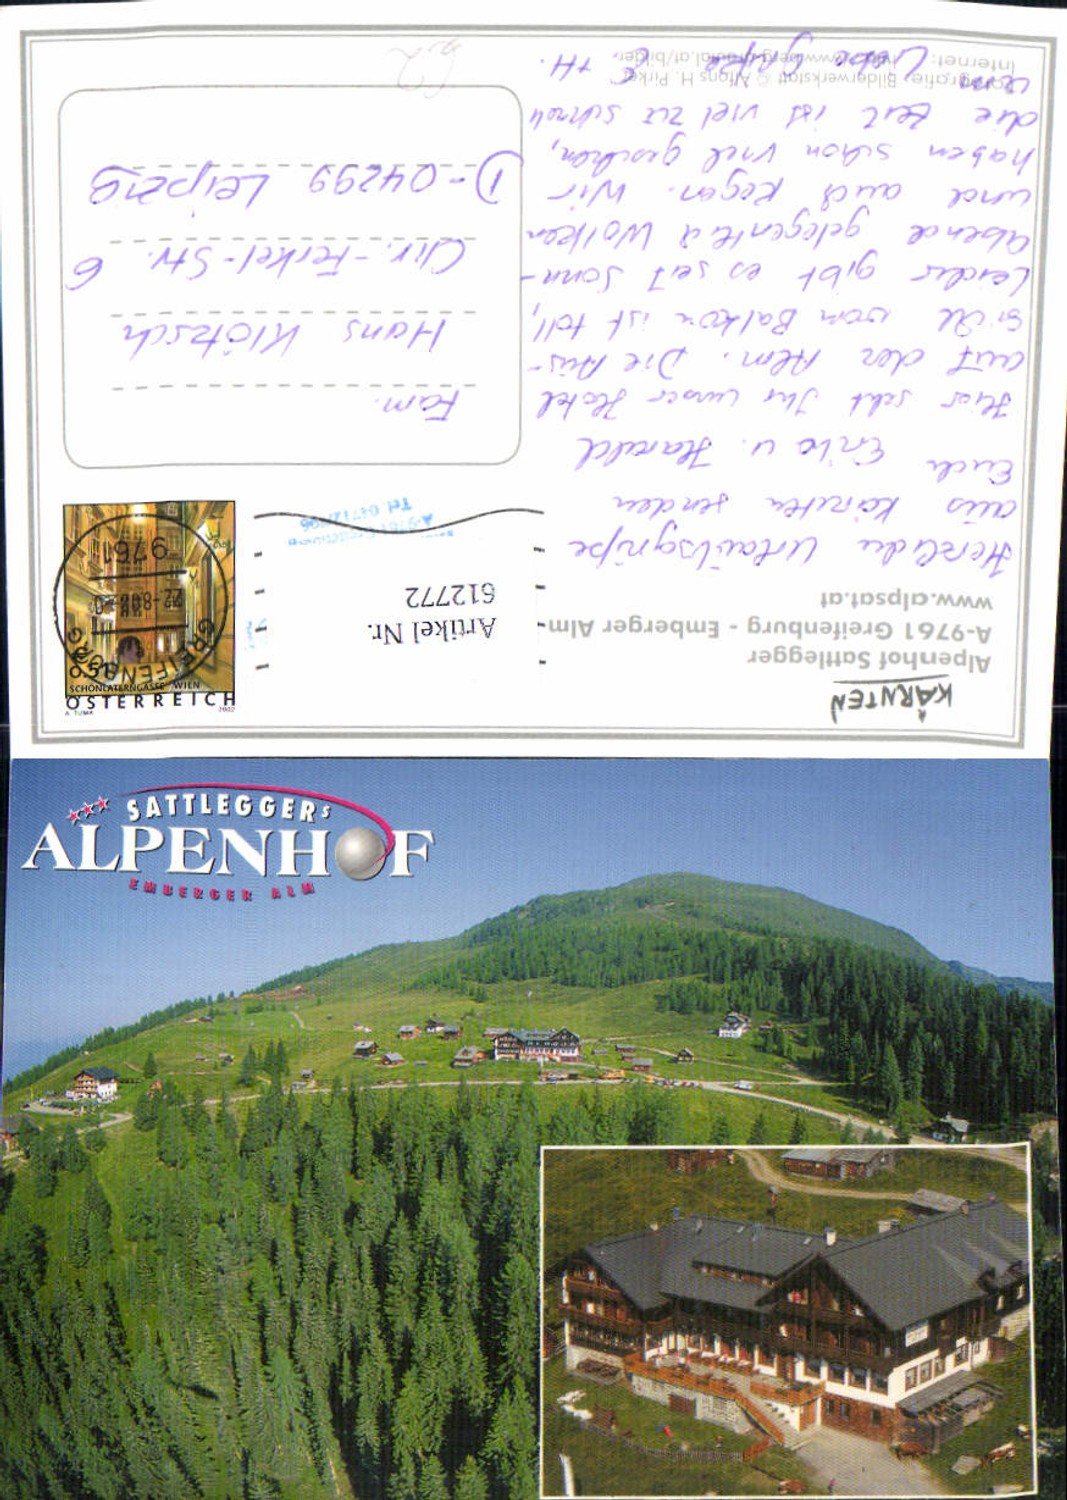 KÄRNTEN
Alpenhof Sattlegger
A-9761 Greifenburg - Emberger Alm
www.alpsat.at
Herzliche Urlaubsgrüße
aus Kärnten senden
Euch Erika u. Harald
Hier seht Ihr unser Hotel
auf der Alm. Die Aus-
sicht vom Balkon ist toll,
Leider gibt es seit Sonn-
abend gelegentlich Wolken
und auch Regen. Wir
haben schon viel gesehen,
die Zeit ist viel zu schnell
um. Liebe Grüße E. + H.
Fotografie: Bilderwerkstatt © Alfons H. Pirker
Internet:
ÖSTERREICH
SCHÖNLATERNGASSE WIEN
A. TUMA
2002
GREIFENBURG
9761
Artikel Nr.
612772
Fam.
Hans Klötzsch
Chr.-Ferkel-Str. 6
D-04299 Leipzig
SATTLEGGERS
ALPENHOF
EMBERGER ALM